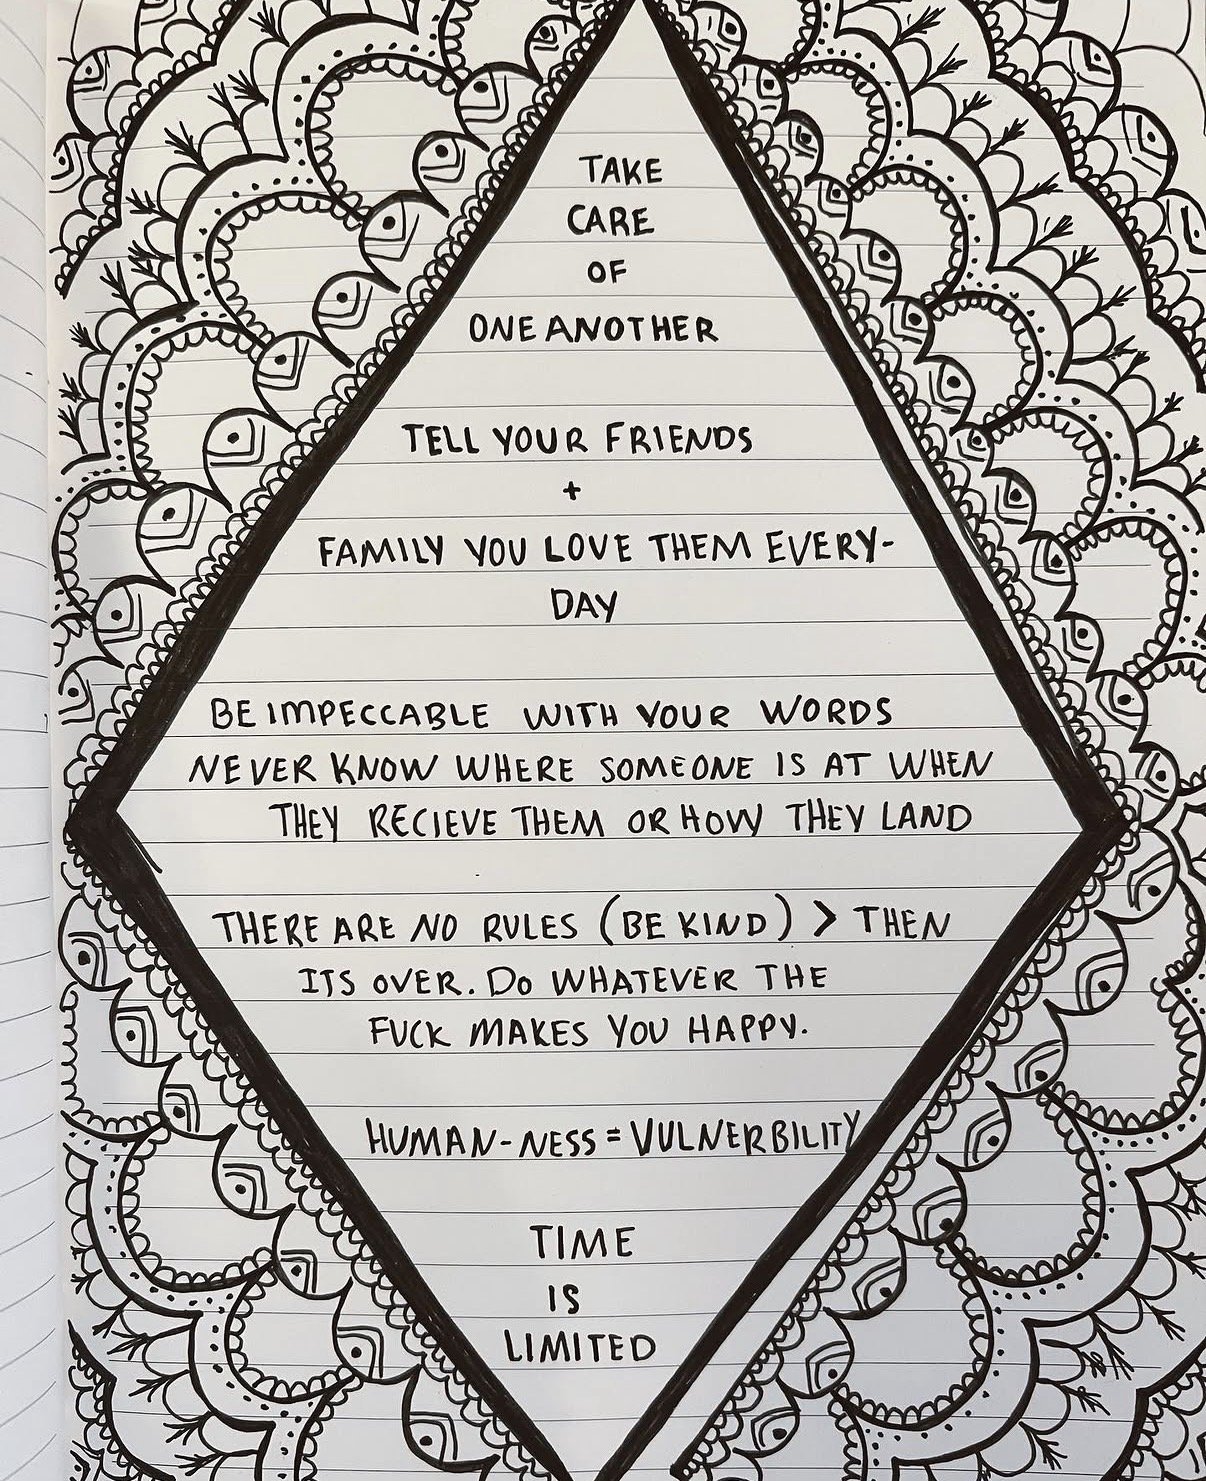 TAKE
CARE
OF
ONE ANOTHER
TELL YOUR FRIENDS
+
FAMILY YOU LOVE THEM EVERY-
DAY
BE IMPECCABLE WITH YOUR WORDS
NEVER KNOW WHERE SOMEONE IS AT WHEN
THEY RECIEVE THEM OR HOW THEY LAND
THERE ARE NO RULES (BE KIND) > THEN
ITS OVER. DO WHATEVER THE
FUCK MAKES YOU HAPPY.
HUMAN-NESS = VULNERBILITY
TIME
IS
LIMITED